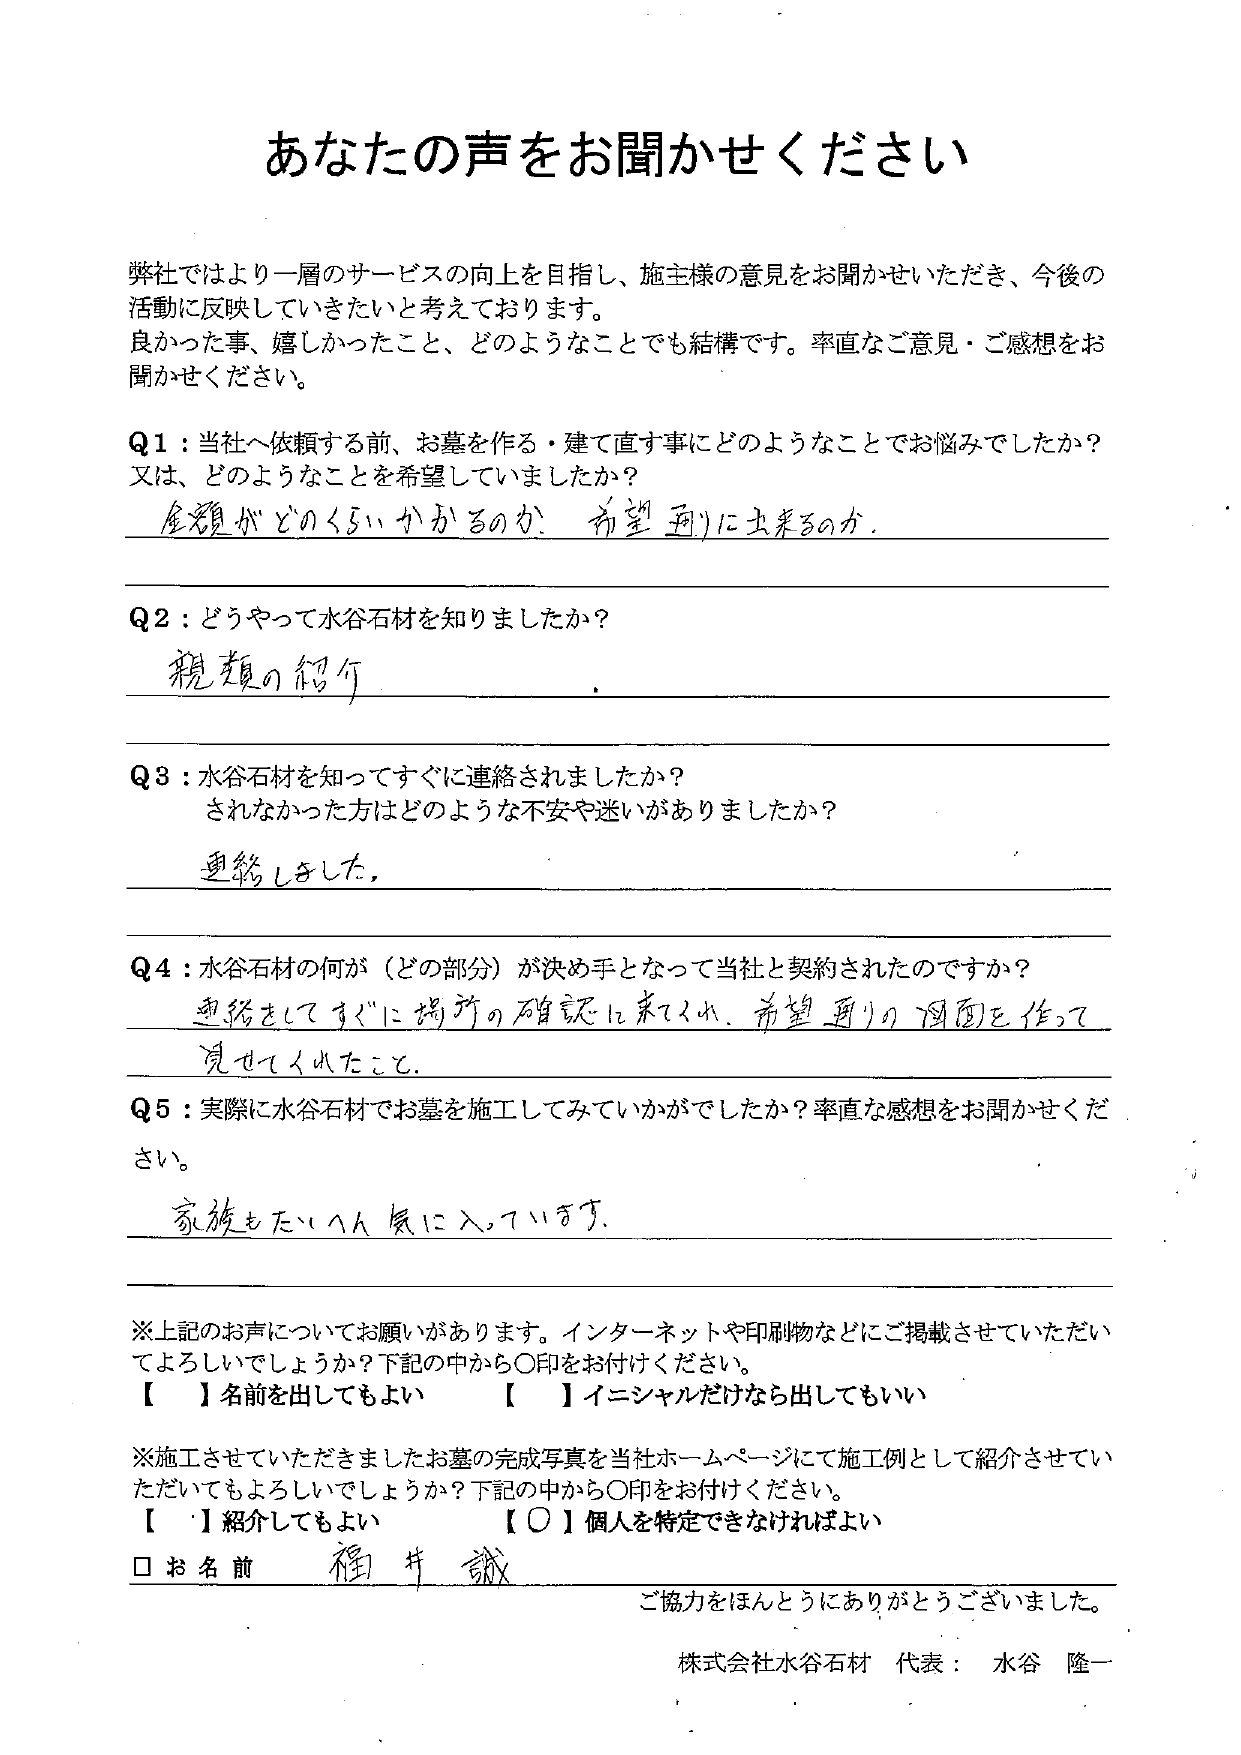 あなたの声をお聞かせください
弊社ではより一層のサービスの向上を目指し、施主様の意見をお聞かせいただき、今後の
活動に反映していきたいと考えております。
良かった事、嬉しかったこと、どのようなことでも結構です。率直なご意見・ご感想をお
聞かせください。
Q1：当社へ依頼する前、お墓を作る・建て直す事にどのようなことでお悩みでしたか？
又は、どのようなことを希望していましたか？
金額がどのくらいかかるのか、希望通りに出来るのか.
Q2：どうやって水谷石材を知りましたか？
親類の紹介
Q3：水谷石材を知ってすぐに連絡されましたか？
されなかった方はどのような不安や迷いがありましたか？
連絡しました.
Q4：水谷石材の何が（どの部分）が決め手となって当社と契約されたのですか？
連絡をしてすぐに場所の確認に来てくれ、希望通りの図面を作って
見せてくれたこと.
Q5：実際に水谷石材でお墓を施工してみていかがでしたか？率直な感想をお聞かせくだ
さい。
家族もたいへん気に入っています.
※上記のお声についてお願いがあります。インターネットや印刷物などにご掲載させていただい
てよろしいでしょうか？下記の中から〇印をお付けください。
【　】名前を出してもよい　　【　】イニシャルだけなら出してもいい
※施工させていただきましたお墓の完成写真を当社ホームページにて施工例として紹介させてい
ただいてもよろしいでしょうか？下記の中から〇印をお付けください。
【　】紹介してもよい　　【〇】個人を特定できなければよい
□お名前　福井 誠
ご協力をほんとうにありがとうございました。
株式会社水谷石材　代表：　水谷　隆一